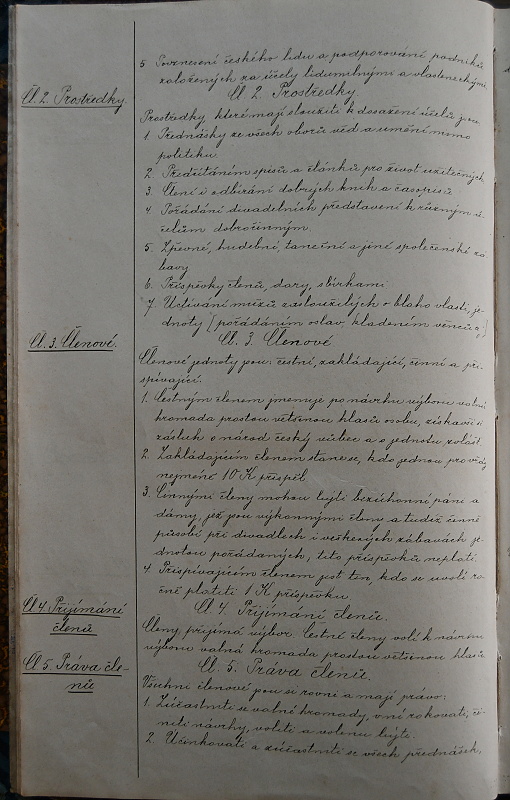 5 Povznesení českého lidu a podporování podniků
založených za účely lidumilnými a vlasteneckými
Čl. 2. Prostředky
Čl. 2. Prostředky.
Prostředky, které mají sloužiti k dosažení účelů jsou:
1. Přednášky ze všech oborů věd a umění mimo
politiku.
2. Předčítáním spisů a článků pro život užitečných
3 Čtení i odbírání dobrých knih a časopisů
4 Pořádání divadelních představení k různým ú-
čelům dobročinným.
5. Zpěvné, hudební, taneční a jiné společenské zá-
bavy
6. Příspěvky členů, dary, sbírkami.
7. Uctívání mužů zasloužilých o blaho vlasti, je-
dnoty (pořádáním oslav, kladením věnců a.)
Čl. 3. Členové.
Čl. 3. Členové
Členové jednoty jsou: čestní, zakládající, činní a při-
spívající.
1. Čestným členem jmenuje po návrhu výboru valná
hromada prostou většinou hlasů osobu, získavší si
zásluh o národ český vůbec a o jednotu zvlášť.
2. Zakládajícím členem stane se, kdo jednou pro vždy
nejméně 10 K přispěl
3. Činnými členy mohou býti bezúhonní páni a
dámy, jež jsou výkonnými členy a tudíž činně
působí při divadlech i veškerých zábavách je-
dnotou pořádaných, tito příspěvků neplatí.
4 Přispívajícím členem jest ten, kdo se uvolí ro-
čně platiti 1 K příspěvku
Čl 4. Přijímání
členů
Čl 4. Přijímání členů.
Členy přijímá výbor. Čestné členy volí k návrhu
výboru valná hromada prostou většinou hlasů
Čl 5. Práva čle-
nů
Čl. 5. Práva členů.
Všichni členové jsou si rovni a mají právo:
1. Zúčastniti se valné hromady, v ní rokovati, či-
niti návrhy, voliti a volenu býti.
2. Účinkovati a zúčastniti se všech přednášek,